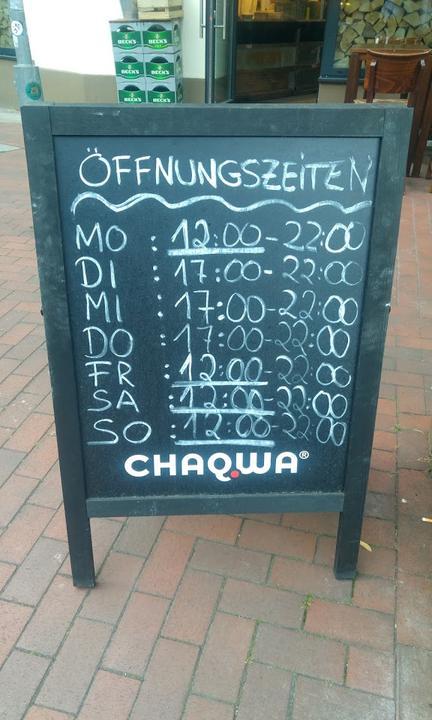 BECK'S BECK'S
BECK'S BECK'S
BECK'S BECK'S
ÖFFNUNGSZEITEN
MO : 12:00-22:00
DI : 17:00-22:00
MI : 17:00-22:00
DO : 17:00-22:00
FR : 12:00-22:00
SA : 12:00-22:00
SO : 12:00-22:00
CHAQWA®